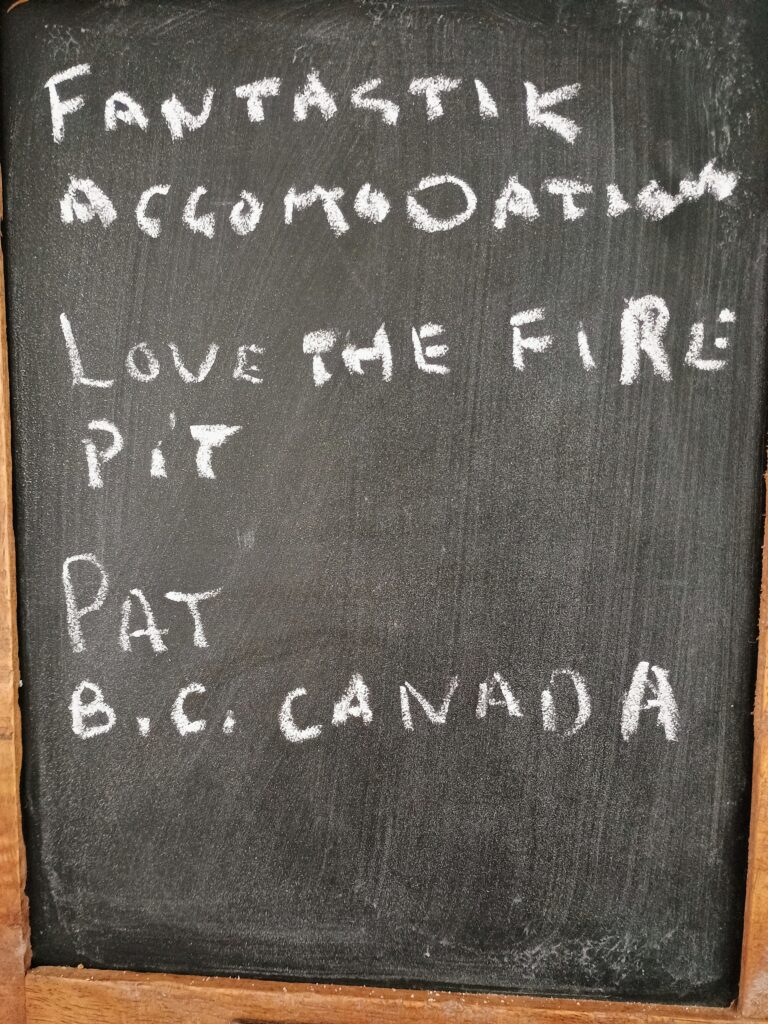 FANTASTIK
ACCOMODATION
LOVE THE FIRE
PiT
PAT
B.C. CANADA